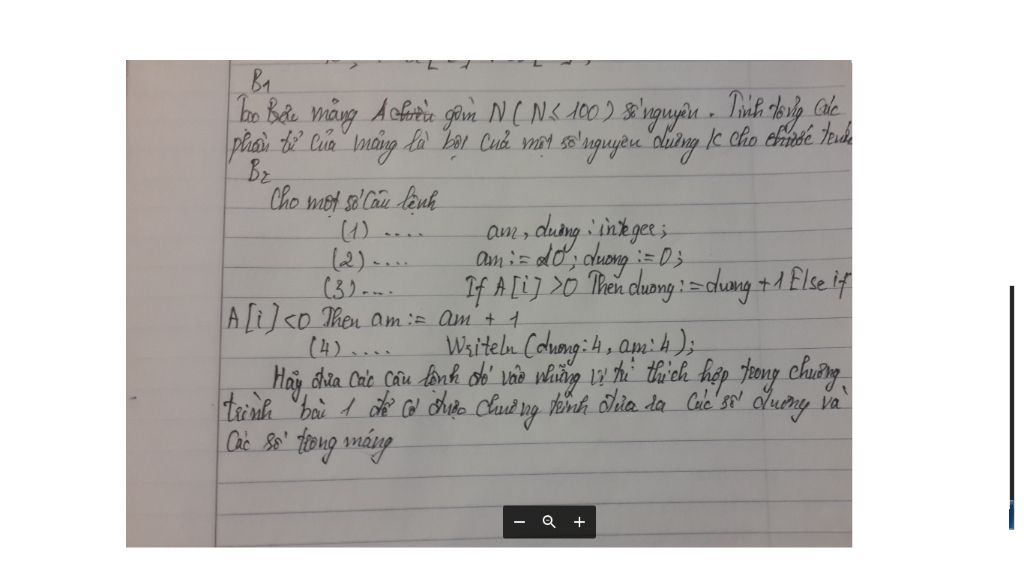 B1
Tạo Bởi mảng A gồm N ( N ≤ 100 ) số nguyên. Tính tổng các
phần tử của mảng là bội của một số nguyên dương K cho trước
B2
Cho một số câu lệnh
(1) .... am, duong : integer;
(2) .... am := 0; duong := 0;
(3) .... If A[i] >0 Then duong := duong +1 Else if
A[i] <0 Then am := am + 1
(4) .... Writeln (duong:4, am:4);
Hãy đưa các câu lệnh đó vào những vị trí thích hợp trong chương
trình bài 1 để có được chương trình đưa ra các số dương và
các số trong mảng